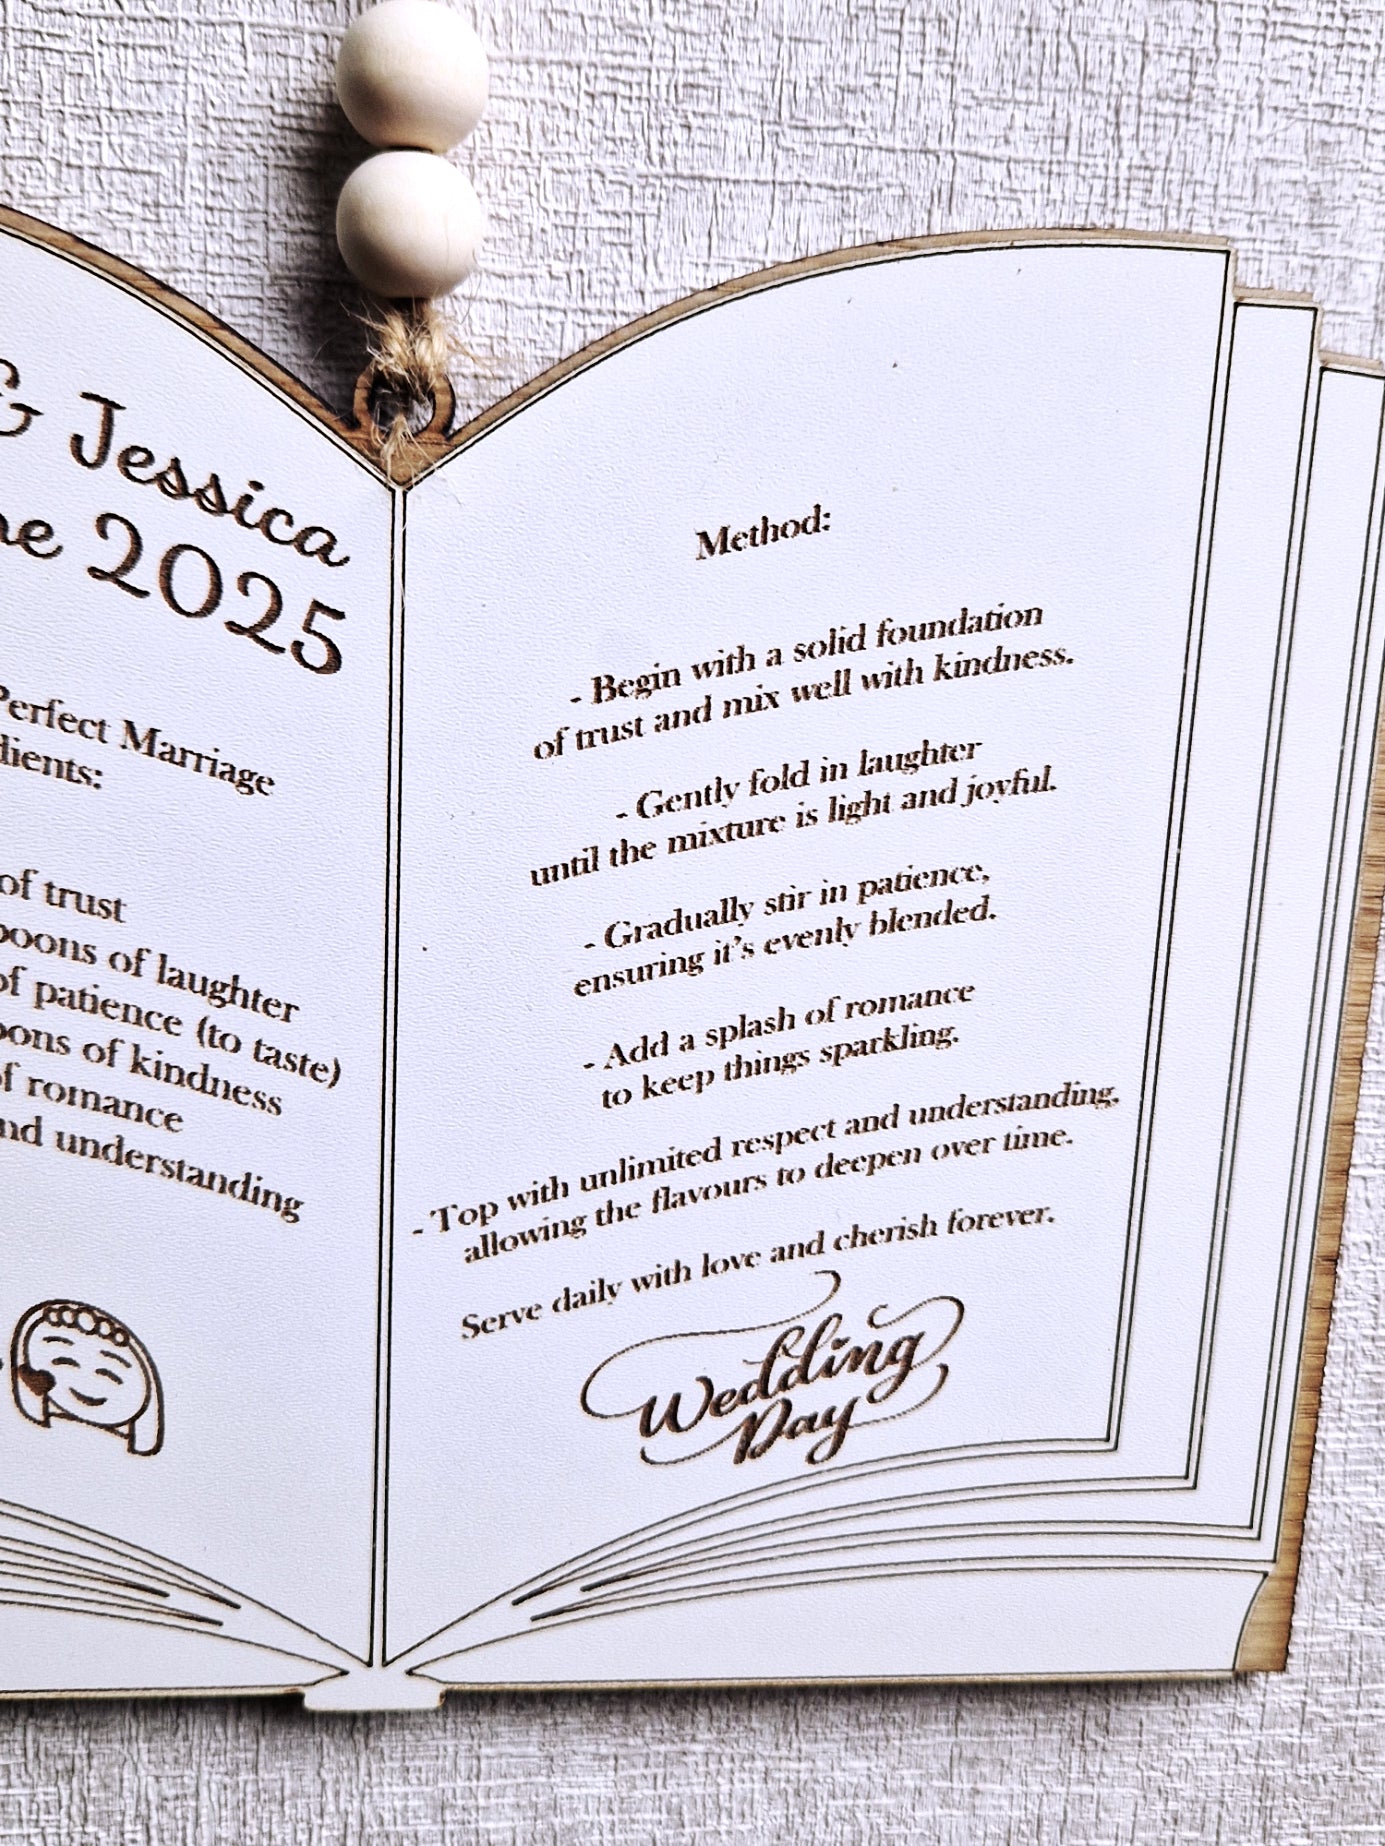 & Jessica
2025
Perfect Marriage
of trust
of laughter
of patience (to taste)
of kindness
romance
understanding
Method:
- Begin with a solid foundation
of trust and mix well with kindness.
- Gently fold in laughter
until the mixture is light and joyful.
- Gradually stir in patience,
ensuring it's evenly blended.
- Add a splash of romance
to keep things sparkling.
- Top with unlimited respect and understanding,
allowing the flavours to deepen over time.
Serve daily with love and cherish forever.
Wedding
Day